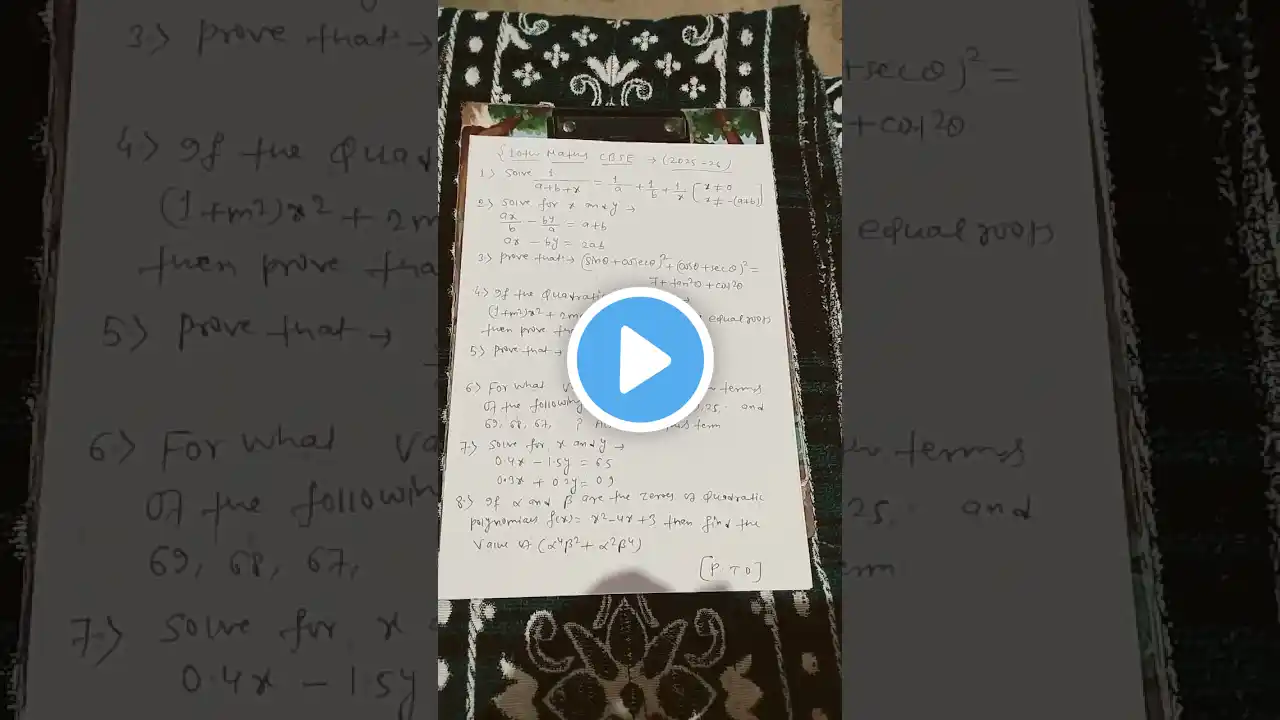 10th Maths CBSE → (2025-26)
1> Solve 1/(a+b+x) = 1/a + 1/b + 1/x [x≠0
x≠-(a+b)]
2> Solve for x and y →
ax/b - by/a = a+b
ax - by = 2ab
3> prove that → (sinθ+cosecθ)² + (cosθ+secθ)² =
7+tan²θ+cot²θ
4> If the Quadratic
(1+m²)x² + 2m equal roots
then prove that
5> prove that →
6> For what terms
of the following 25, and
69, 68, 67, ? term
7> Solve for x and y →
0.4x - 1.5y = 6.5
0.3x + 0.2y = 0.9
8> If α and β are the zeroes of Quadratic
polynomials f(x) = x²-4x+3 then find the
value of (α⁴β²+α²β⁴)
[P T O]